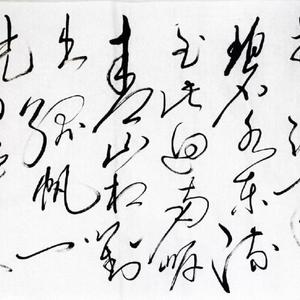 碧水东流
至此回两岸
青山相对
出孤帆一